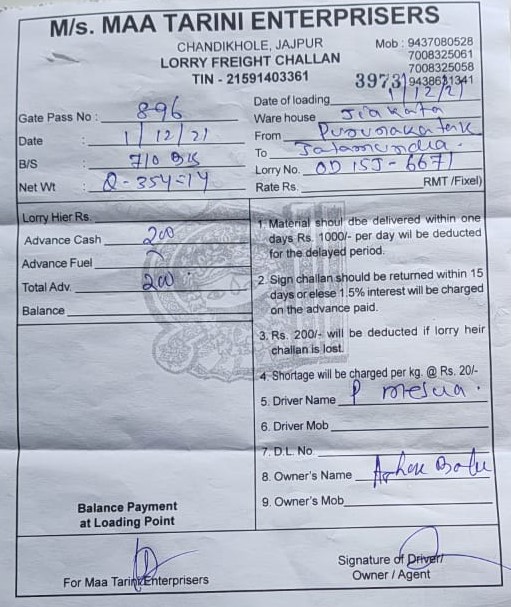 M/s. MAA TARINI ENTERPRISERS
CHANDIKHOLE, JAJPUR
LORRY FREIGHT CHALLAN
TIN - 21591403361
Mob : 9437080528
7008325061
7008325058
9438631341
3973
Gate Pass No : 896
Date : 1/12/21
B/S : 710 B/S
Net Wt : Q-354-14
Date of loading 1/12/21
Ware house Jiakata
From
To
Lorry No. OD 15J-6671
Rate Rs. RMT /Fixel)
Lorry Hier Rs.
Advance Cash 200
Advance Fuel
Total Adv. 200
Balance
1. Material shoul dbe delivered within one
days Rs. 1000/- per day wil be deducted
for the delayed period.
2. Sign challan should be returned within 15
days or elese 1.5% interest will be charged
on the advance paid.
3. Rs. 200/- will be deducted if lorry heir
challan is lost.
4. Shortage will be charged per kg. @ Rs. 20/-
5. Driver Name P
6. Driver Mob
7. D.L. No
8. Owner's Name
9. Owner's Mob
Balance Payment
at Loading Point
For Maa Tarini Enterprisers
Signature of Driver/
Owner / Agent